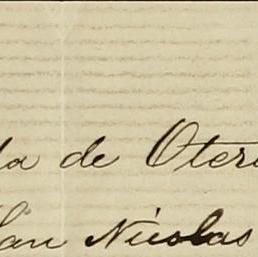 da de Oteri
San Nicolas